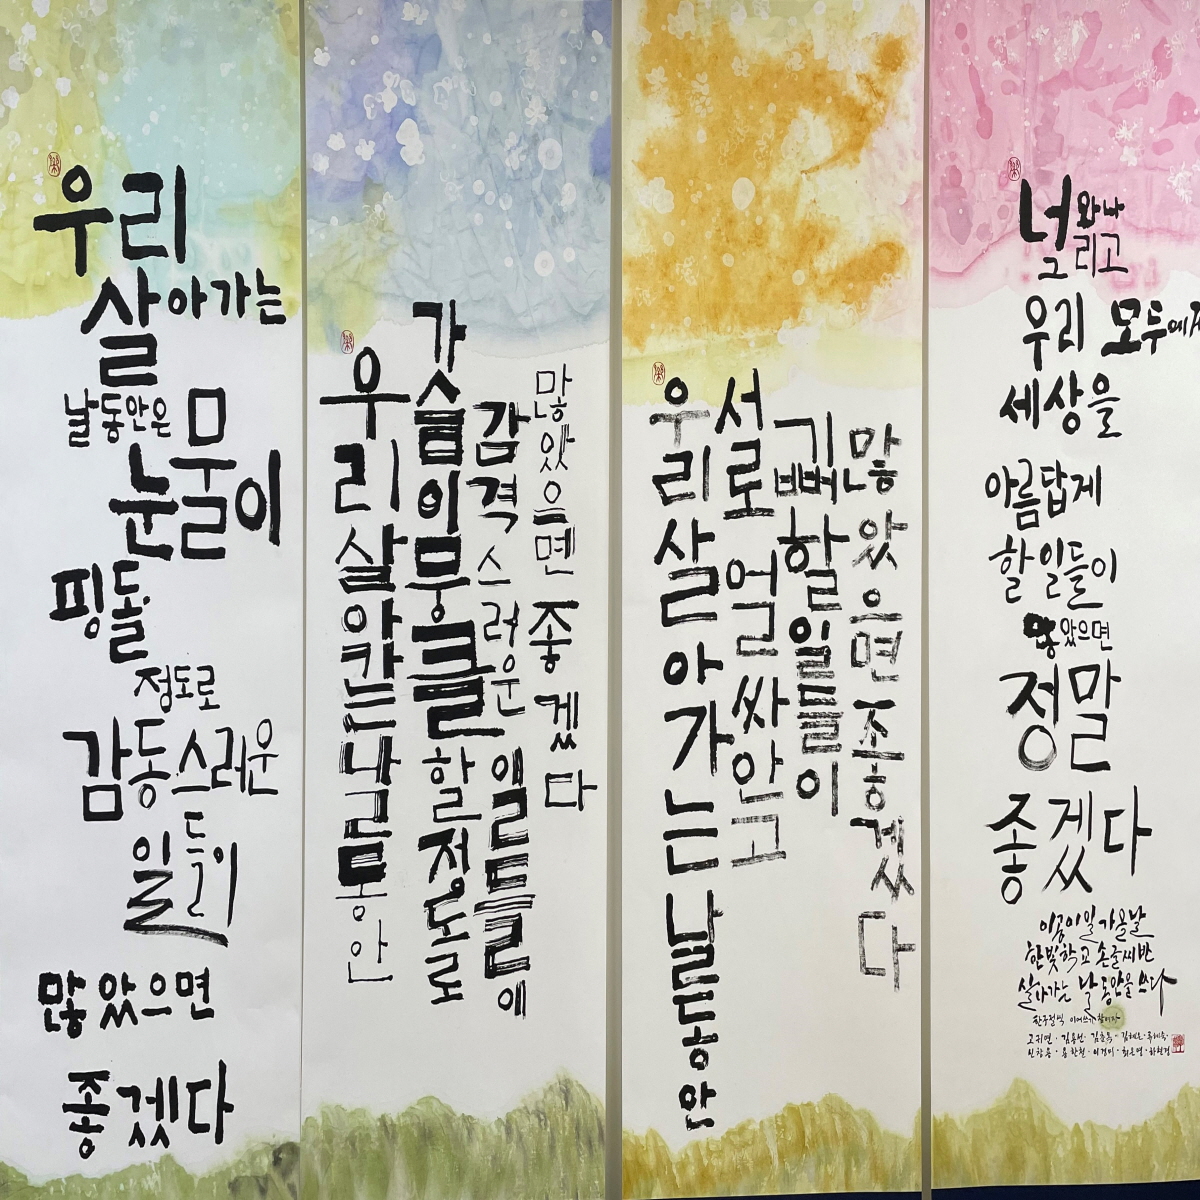 우리
살아가는
날동안은
눈물이
핑돌
정도로
감동스러운
일들이
많았으면
좋겠다
우리살아가는날동안
가슴이뭉클할정도로
감격스러운 일들에
많았으면 좋겠다
우리살아가는날동안
서로 얼싸안고
기뻐할일들이
많았으면좋겠다
너와나
그리고
우리 모두에게
세상을
아름답게
할 일들이
많았으면
정말
좋겠다
이공이일 가을날
한빛학교 손글씨반
살아가는 날 동안을 쓰다
한구절씩 이어쓰기